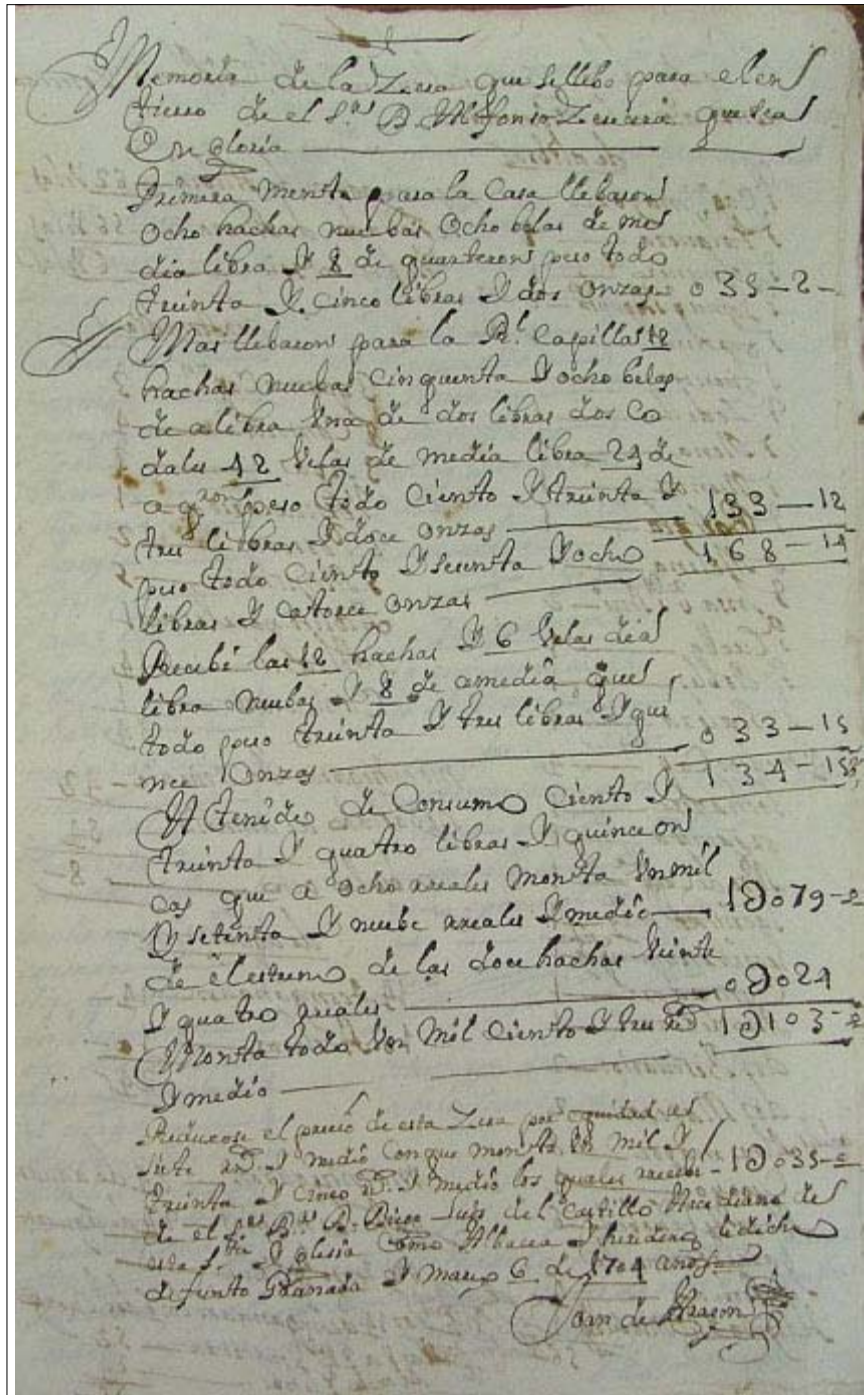 Memoria de la Zera que se llebo para el en
tierro de el S.r D. Alfonso que sea
En gloria
Primera mente para la Casa llebaron
ocho hachas nuebas Ocho belas de me
dia libra Y 8 de quarteron peso todo
treinta Y cinco libras Y dos onzas 035-2-
Mas llebaron para la R.l Capilla 12
hachas nuebas cinquenta Y ocho belas
de a libra Una de dos libras dos Co
dales 42 Velas de media libra 24 de
a q.ron peso todo ciento Y treinta Y
tres libras Y doce onzas 133-12
peso todo ciento Y sesenta Y ocho 168-14
libras Y catorce onzas
Recebi las 12 hachas Y 6 Velas de a
libra nuebas Y 8 de a media que
todo peso treinta Y tres libras Y qui
nce onzas 033-15
A tenido de Consumo Ciento Y 134-15
treinta Y quatro libras Y quince on
zas que a ocho reales monta Un mil
Y setenta Y nuebe reales Y medio 1U079-2
de el estreno de las doce hachas Veinte
Y quatro reales 0U024
Monta todo Un Mil Ciento Y tres r.s 1U103-2
Y medio
Reducose el precio de esta Zera por equidad a
siete r.s Y medio con que monta Un mil Y
treinta Y cinco r.s Y medio los quales recebi 1U035-2
de el S.r D. Diego Luis del Castillo Arcediano de
esta S.ta Yglesia Como Albacea Y heredero de dicho
defunto Granada Y março 6 de 1704 años
Joan de Aragon